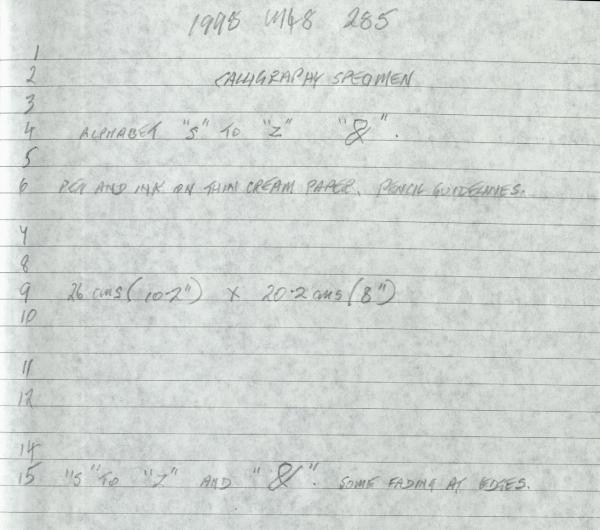 1998 WL8 285
1
2 CALLIGRAPHY SPECIMEN
3
4 ALPHABET "S" TO "Z" "&".
5
6 PEN AND INK ON THIN CREAM PAPER. PENCIL GUIDELINES.
7
8
9 26 cms (10·2") X 20·2 cms (8")
10
11
12
14
15 "S" TO "Z" AND "&". SOME FADING AT EDGES.